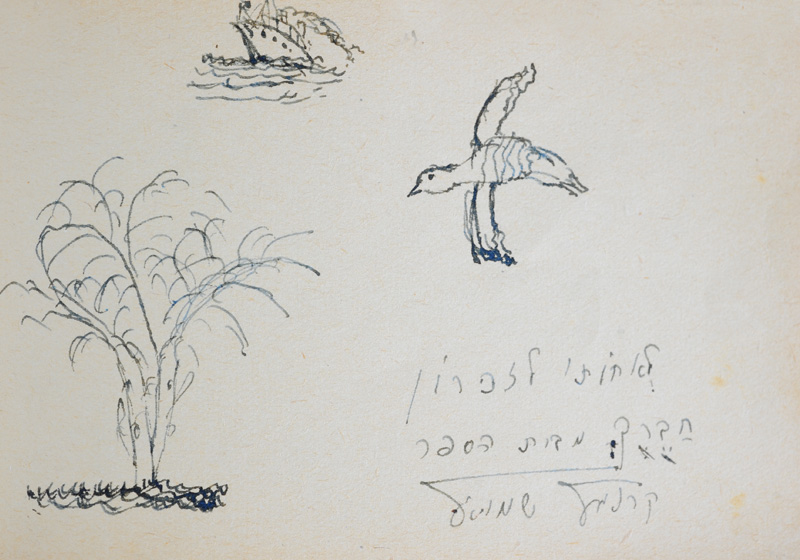 לאחותי לזכרון
חברך מבית הספר
שמואל